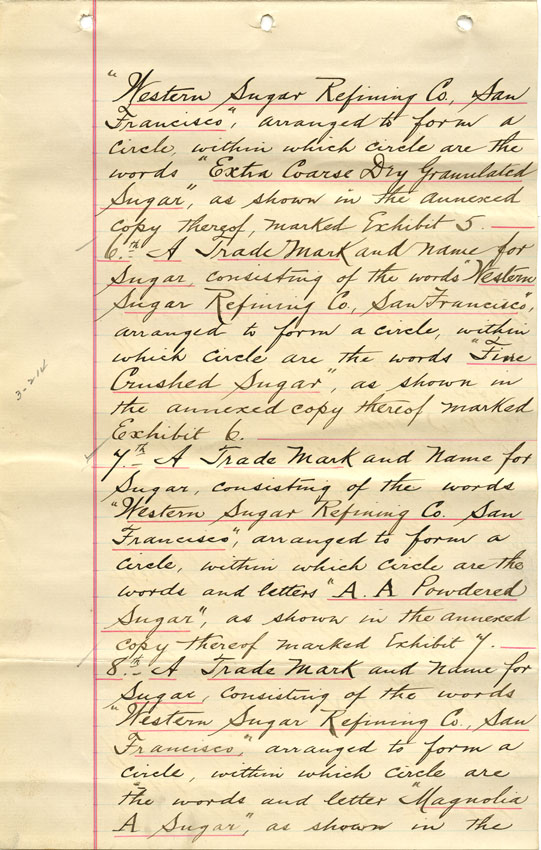 "Western Sugar Refining Co., San
Francisco", arranged to form a
circle, within which circle are the
words "Extra Coarse Dry Granulated
Sugar", as shown in the annexed
copy thereof, marked Exhibit 5.
6.th A Trade Mark and name for
Sugar, consisting of the words "Western
Sugar Refining Co., San Francisco",
arranged to form a circle, within
which circle are the words "Fine
Crushed Sugar", as shown in
the annexed copy thereof marked
Exhibit 6.
3-214
7.th A Trade Mark and Name for
Sugar, consisting of the words
"Western Sugar Refining Co. San
Francisco", arranged to form a
circle, within which circle are the
words and letters "A. A Powdered
Sugar", as shown in the annexed
copy thereof marked Exhibit 7.
8.th A Trade Mark and Name for
Sugar, consisting of the words
"Western Sugar Refining Co., San
Francisco," arranged to form a
circle, within which circle are
the words and letter "Magnolia
A Sugar", as shown in the